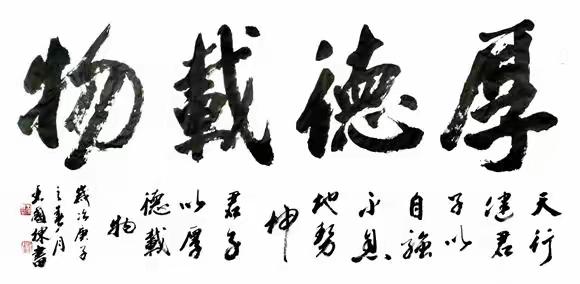 厚德載物
天行
健君
子以
自強
不息
地勢
坤
君子
以厚
德載
物
歲次庚子
之春月
國書